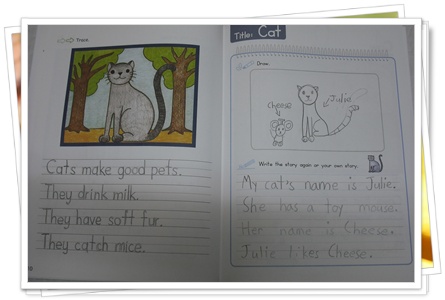 Trace.
Cats make good pets.
They drink milk.
They have soft fur.
They catch mice.
Title: Cat
Draw.
Cheese
Julie
Write the story again or your own story.
My cat's name is Julie.
She has a toy mouse.
Her name is Cheese.
Julie likes Cheese.